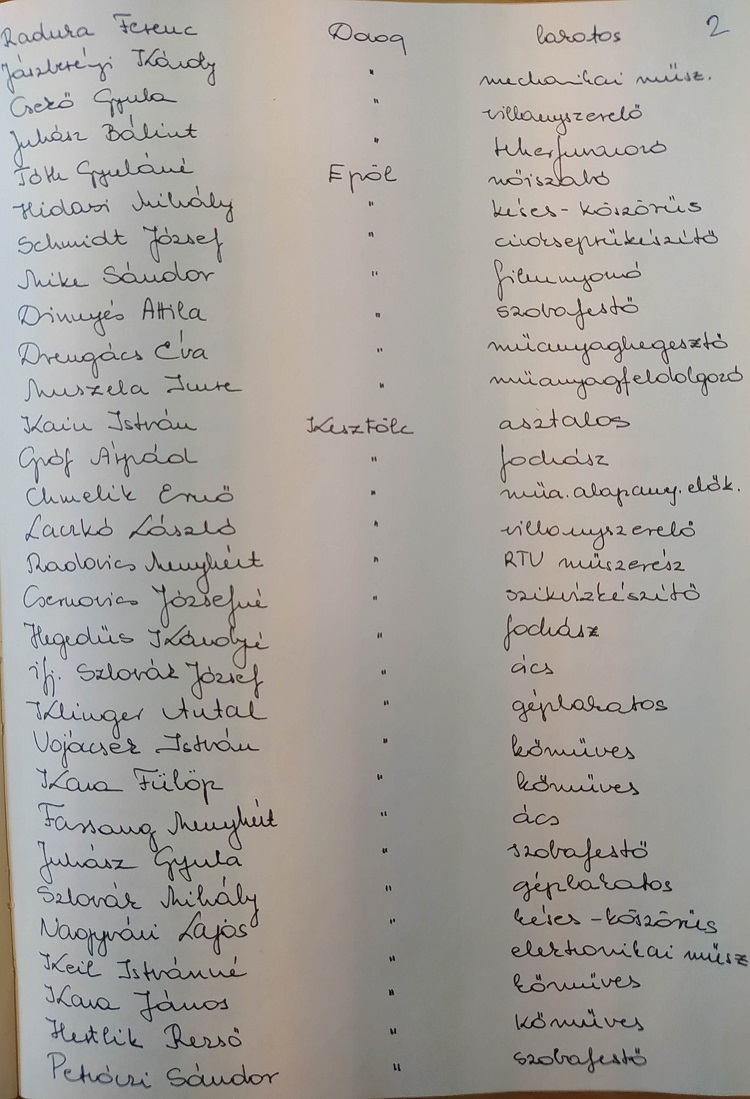 2
Radura Ferenc Daog lakatos
Jászberényi Károly " mechanikai műsz.
Cserő Gyula " villanyszerelő
Juhász Bálint " teherfuvarozó
Tóth Gyuláné Epöl nőiszabó
Hidasi Mihály " késes-köszörűs
Schmidt József " cirokseprűkészítő
Mike Sándor " filmnyomó
Dinnyés Attila " szobafestő
Drengács Éva " műanyaghegesztő
Muszela Imre " műanyagfeldolgozó
Kain István Kesztölc asztalos
Gróf Árpád " fodrász
Chmelik Ernő " műa.alapany.elők.
Laczkó László " villanyszerelő
Radovics Menyhért " RTV műszerész
Csernovics Józsefné " szikvízkészítő
Hegedűs Károlyé " fodrász
ifj. Szlovák József " ács
Klinger Antal " géplakatos
Vojácsek István " kőműves
Kara Fülöp " kőműves
Farsang Menyhért " ács
Juhász Gyula " szobafestő
Szlovák Mihály " géplakatos
Nagyvári Lajos " késes-köszörűs
Keil Istvánné " elektronikai műsz
Kara János " kőműves
Hertlik Rezső " kőműves
Petróczi Sándor " szobafestő